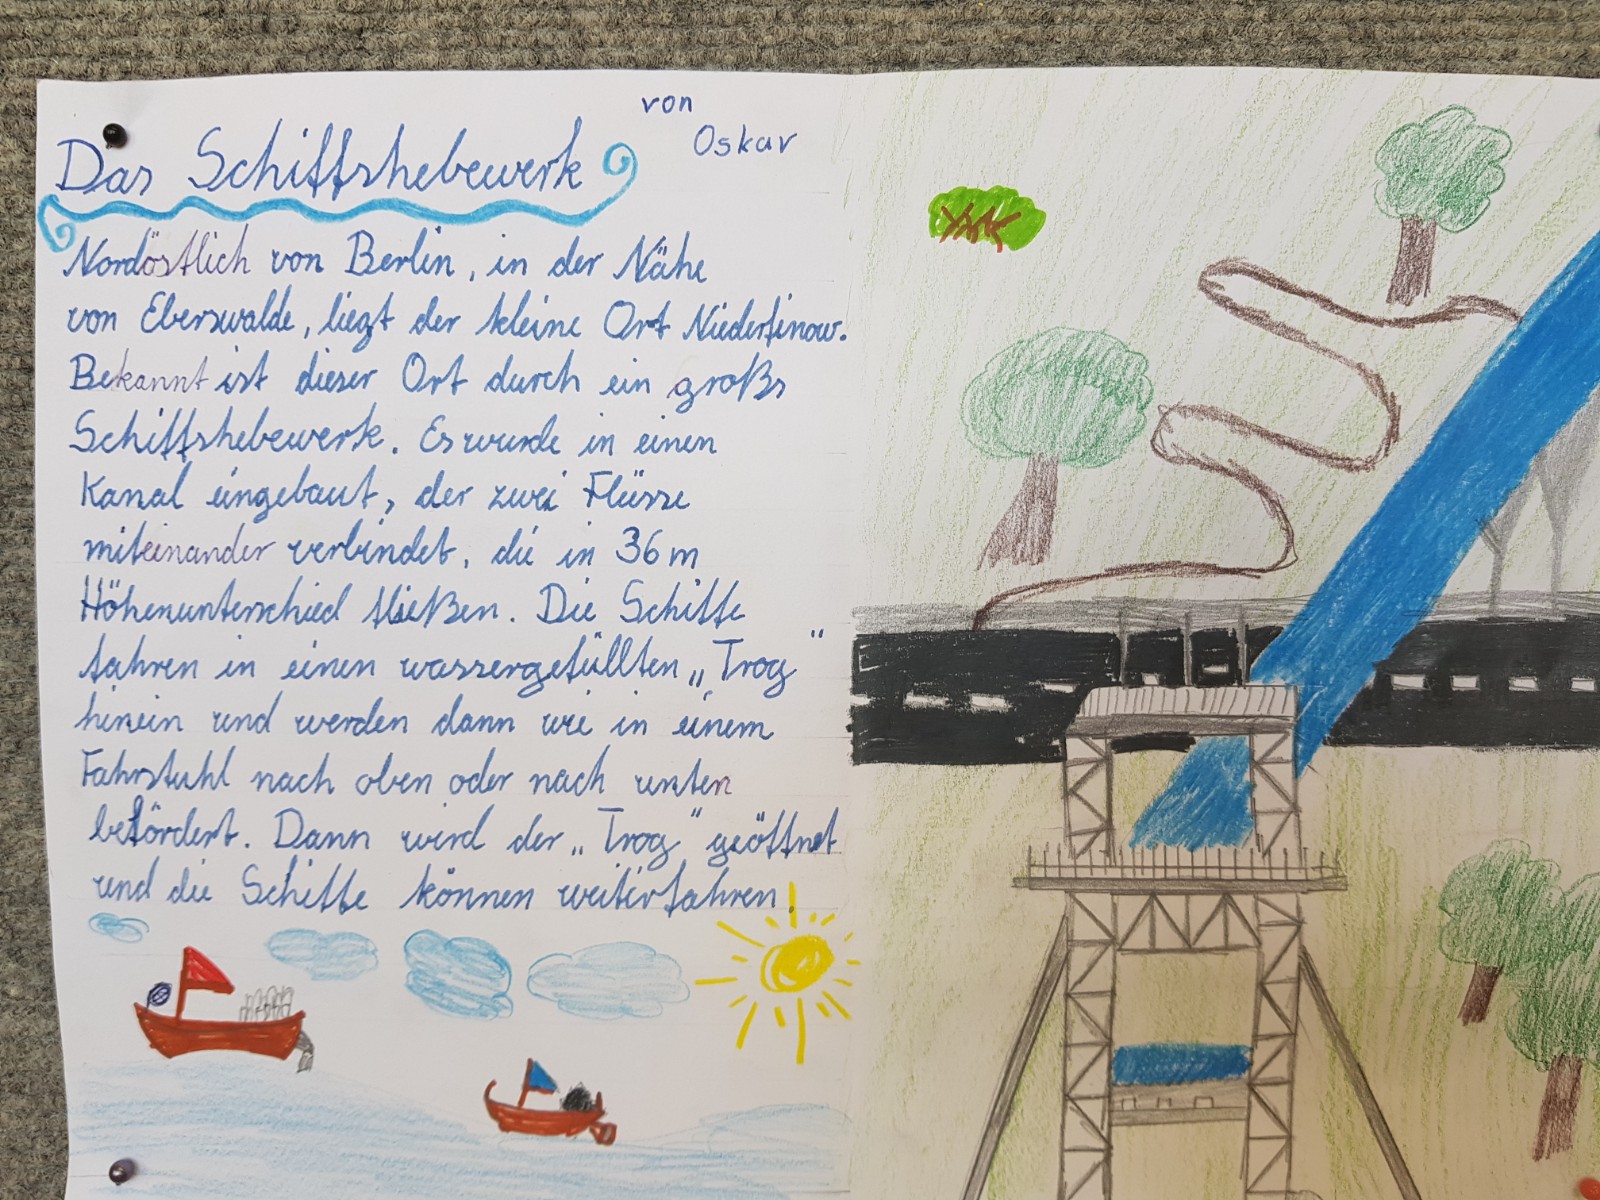 von
Oskar
Das Schiffshebewerk
Nordöstlich von Berlin, in der Nähe
von Eberswalde, liegt der kleine Ort Niederfinow.
Bekannt ist dieser Ort durch ein großs
Schiffshebewerk. Es wurde in einen
Kanal eingebaut, der zwei Flüsse
miteinander verbindet, die in 36 m
Höhenunterschied fließen. Die Schiffe
fahren in einen wassergefüllten „Trog"
hinein und werden dann wie in einem
Fahrstuhl nach oben oder nach unten
befördert. Dann wird der „Trog" geöffnet
und die Schiffe können weiterfahren.